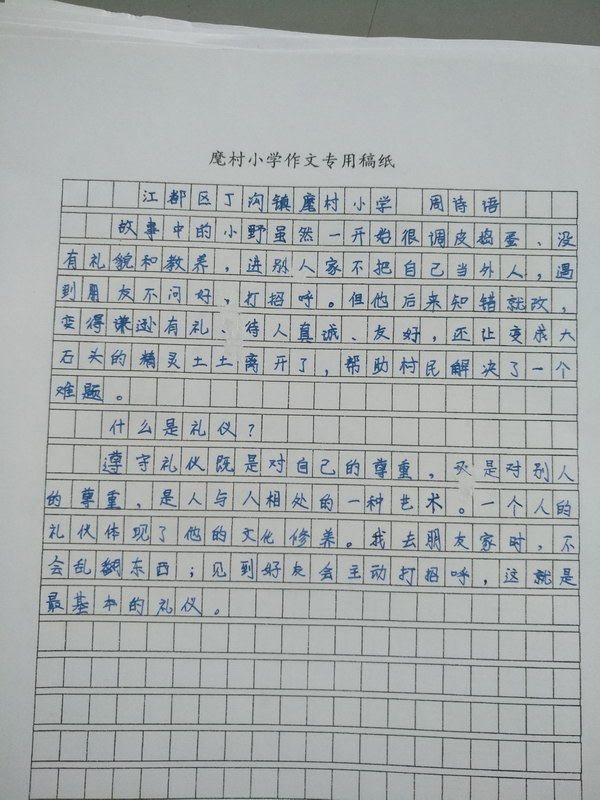 麾村小学作文专用稿纸
江都区丁沟镇麾村小学 周诗语
故事中的小野虽然一开始很调皮捣蛋、没
有礼貌和教养，进别人家不把自己当外人，遇
到朋友不问好，打招呼。但他后来知错就改，
变得谦逊有礼、待人真诚、友好，还让变成大
石头的精灵土土离开了，帮助村民解决了一个
难题。
什么是礼仪？
遵守礼仪既是对自己的尊重，又是对别人
的尊重，是人与人相处的一种艺术。一个人的
礼仪体现了他的文化修养。我去朋友家时，不
会乱翻东西；见到好友会主动打招呼，这就是
最基本的礼仪。